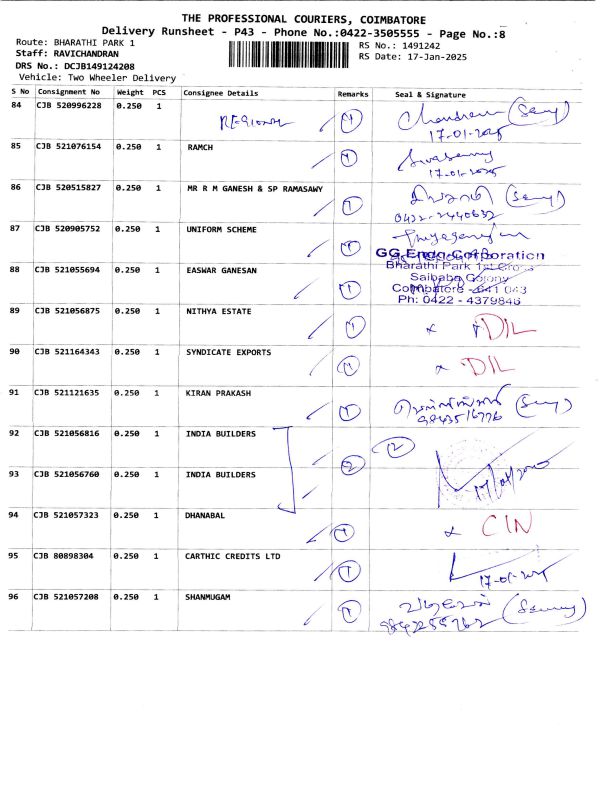 THE PROFESSIONAL COURIERS, COIMBATORE
Delivery Runsheet - P43 - Phone No.:0422-3505555 - Page No.:8
Route: BHARATHI PARK 1
RS No.: 1491242
Staff: RAVICHANDRAN
RS Date: 17-Jan-2025
DRS No.: DCJB149124208
Vehicle: Two Wheeler Delivery
S No Consignment No Weight PCS Consignee Details Remarks Seal & Signature
84 CJB 520996228 0.250 1 1 (Seny)
17-01-2025
85 CJB 521076154 0.250 1 RAMCH 1
17-01-2025
86 CJB 520515827 0.250 1 MR R M GANESH & SP RAMASAWY 1
0422-2440632
87 CJB 520905752 0.250 1 UNIFORM SCHEME 1
GG Endo Corporation
Bharathi Park 1st Cross
88 CJB 521055694 0.250 1 EASWAR GANESAN 1 Saibaba Colony
Coimbatore - 641 043
Ph: 0422 - 4379846
89 CJB 521056875 0.250 1 NITHYA ESTATE 1 DIL
90 CJB 521164343 0.250 1 SYNDICATE EXPORTS 1 DIL
91 CJB 521121635 0.250 1 KIRAN PRAKASH 1
9843516776
92 CJB 521056816 0.250 1 INDIA BUILDERS 2 2
93 CJB 521056760 0.250 1 INDIA BUILDERS
94 CJB 521057323 0.250 1 DHANABAL 1 CIN
95 CJB 80898304 0.250 1 CARTHIC CREDITS LTD 1
17-01-2025
96 CJB 521057208 0.250 1 SHANMUGAM 1
9842255762